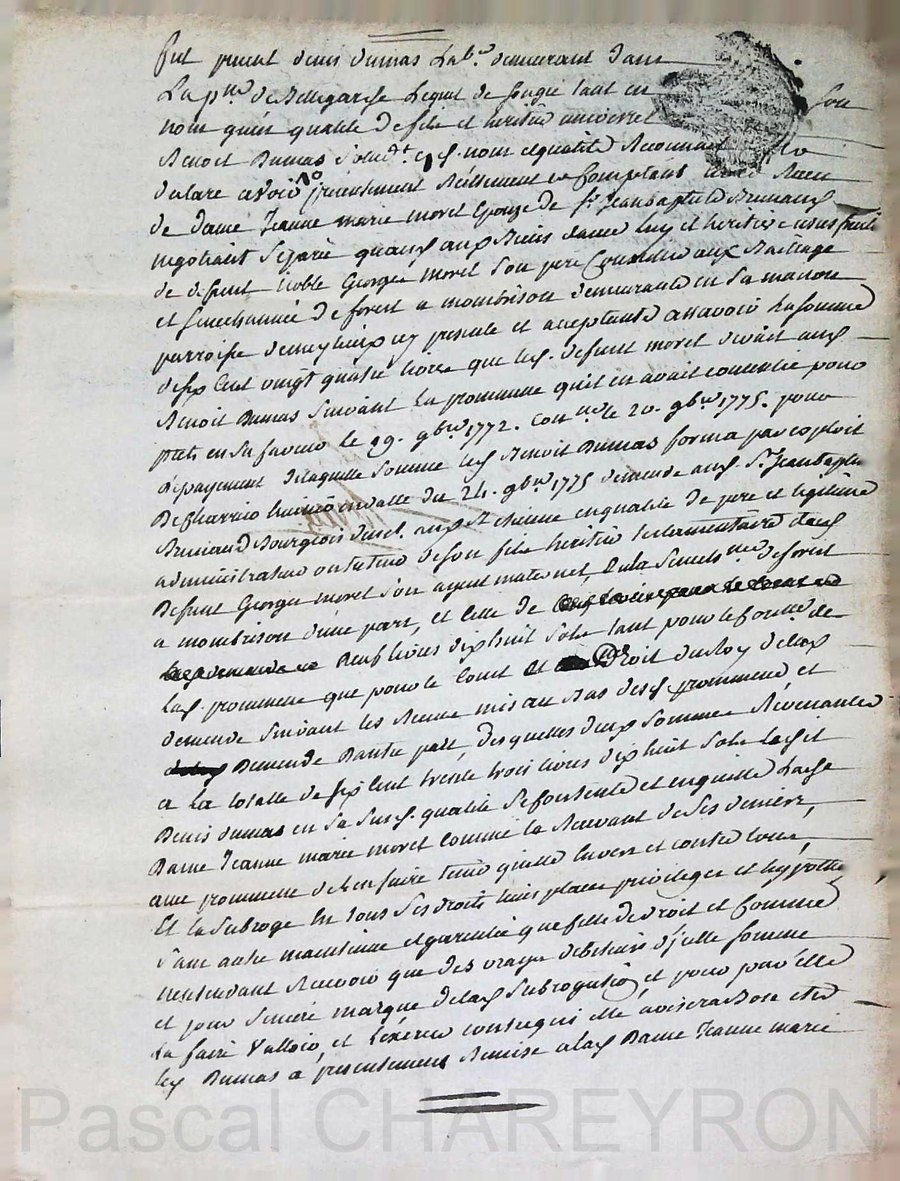 fut present denis dumas Lab.r demeurant dans
La p.sse de Bellegarde Lequel de sougie tant en son
nom qu'en qualité de fils et heritier universel
Benoit Dumas Solud.t esd. nom et qualité Reconnait
declare avoir presentement Réellement et Comptant Receu
de dame Jeanne marie moret Epouze de S.r Jeanbaptiste Brunaud
negotiant Séparée quand aux Biens d'avec luy et heritiere
de defunt noble Georges moret Son pere Conseiller aux Bailliage
et Senechaussée de forest a montbrison demeurante en Sa maison
parroisse de meylieux icy presente et aceptante assavoir La Somme
de six Cent vingt quatre livres que led. defunt moret devait aud.
Benoit Dumas Suivant La promesse qu'il en avait consentie pour
prets en sa faveur le 29. 9bre 1772. Con.lée le 20. 9bre 1775. pour
Depayement de laquelle Somme led. Benoit Dumas forma par exploit
De Charrin huissier en datte du 24. 9bre 1775 demande aud. S.r Jeanbaptiste
Bruniaud Bourgeois dud. en qualité de pere et legitime
administrateur de son fils heritier testamentaire dud.
Defunt Georges moret Son ayeul maternel, en la Senech.ssée de forest
a montbrison d'une part, et Celle de
neuf livres dix huit Sols tant pour le Controlle de
Lad. promesse que pour le Cout et Droit du Roy de lad.
demande Suivant les Receus mis au Bas desd. promesse et
Demande D'autre part, desquelles deux Sommes Revenantes
a La totalle de six Cent trente trois livres dix huit Sols Led.it
Denis dumas en Sa Susd. qualité Se Contente et en quitte Lad.e
Dame Jeanne marie moret comme la Recevant de Ses deniers,
avec promesse de l'en faire tenir quitte Envers et contre tous,
Et la Subroge En tous Ses droits lieu place privileges et hypotheques
Sans autre maintenue et garentie que celle de droit et Comme
n'entendant Recevoir que des vrays debiteurs d'icelle Somme
et pour Sincere marque de lad. Subrogation, et pour par elle
La faire Valloir et L'exercer contre qui elle avisera Bon etre
led. Dumas à presentement Remise a lad. Dame Jeanne marie
Pascal CHAREYRON